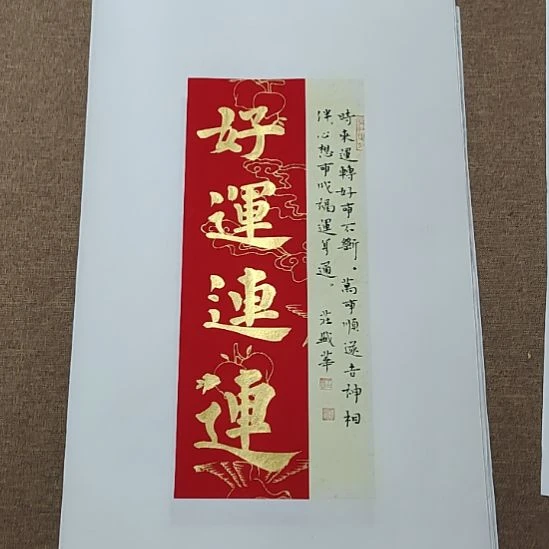 好運連連
時來運轉好事不斷、萬事順遂吉神相
伴、心想事成福運亨通。莊盛華